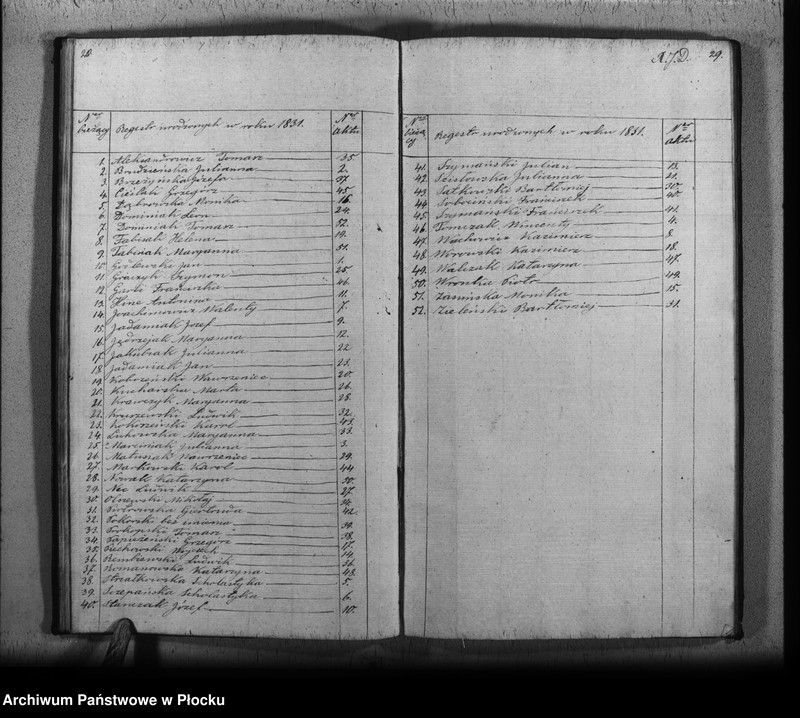 28.
Nrm bieżący Regestr urodzonych w roku 1831. Nrm aktu
1. Aleksandrowicz Tomasz 35
2. Brudzieńska Julianna 2.
3. Brzezyńska Józefa 37
4. Cieślak Grzegorz 45
5. Dąbrowska Monika 16
6. Dominiak Leon 24.
7. Dominiak Tomasz 52.
8. Fabisak Helena 19.
9. Fabisiak Maryanna 51.
10. Jan 1.
11. Szymon 25
12. Franciszka 46
13. Antonina 11.
14. Joachimowicz Walenty 7.
15. Jadamiak Józef 9.
16. Jędrzejak Maryanna 12.
17. Jakubiak Julianna 22
18. Jadamiak Jan 23.
19. Kobrzeński Wawrzeniec 20.
20. Kucharska Marta 26.
21. Krawczyk Maryanna 28.
22. Ludwik 32.
23. Karol 43.
24. Maryanna 33.
25. Marciniak Julianna 3.
26. Matusiak Wawrzeniec 29.
27. Markowski Karol 44
28. Nowak Katarzyna 50.
29. Ludwik 27.
30. Olszewski Mikołaj 34.
31. Piotrowska 42.
32. Pokorski bez imienia
33. Tomasz 39.
34. Grzegorz 38.
35. Wojciech 17.
36. Rembowski Ludwik 14.
37. Romanowska Katarzyna 36.
38. Strzałkowska Scholastyka 48.
5.
39. Szczepańska Scholastyka 6.
40. Józef 10.
A.J.D. 29.
Nrm bieżący Regestr urodzonych w roku 1831. Nrm aktu
41. Szymański Julian 13.
42. Julianna 21.
43. Satkowski Bartłomiej 30.
44. Franciszek 40.
45. Szymański Franciszek 41.
46. Tomczak Wincenty 4.
47. Wachowicz Kazimierz 8
48. Kazimierz 18.
49. Walczak Katarzyna 47.
50. Wronka Piotr 49.
51. Zasińska Monika 15.
52. Zieleński Bartłomiej 31.
Archiwum Państwowe w Płocku